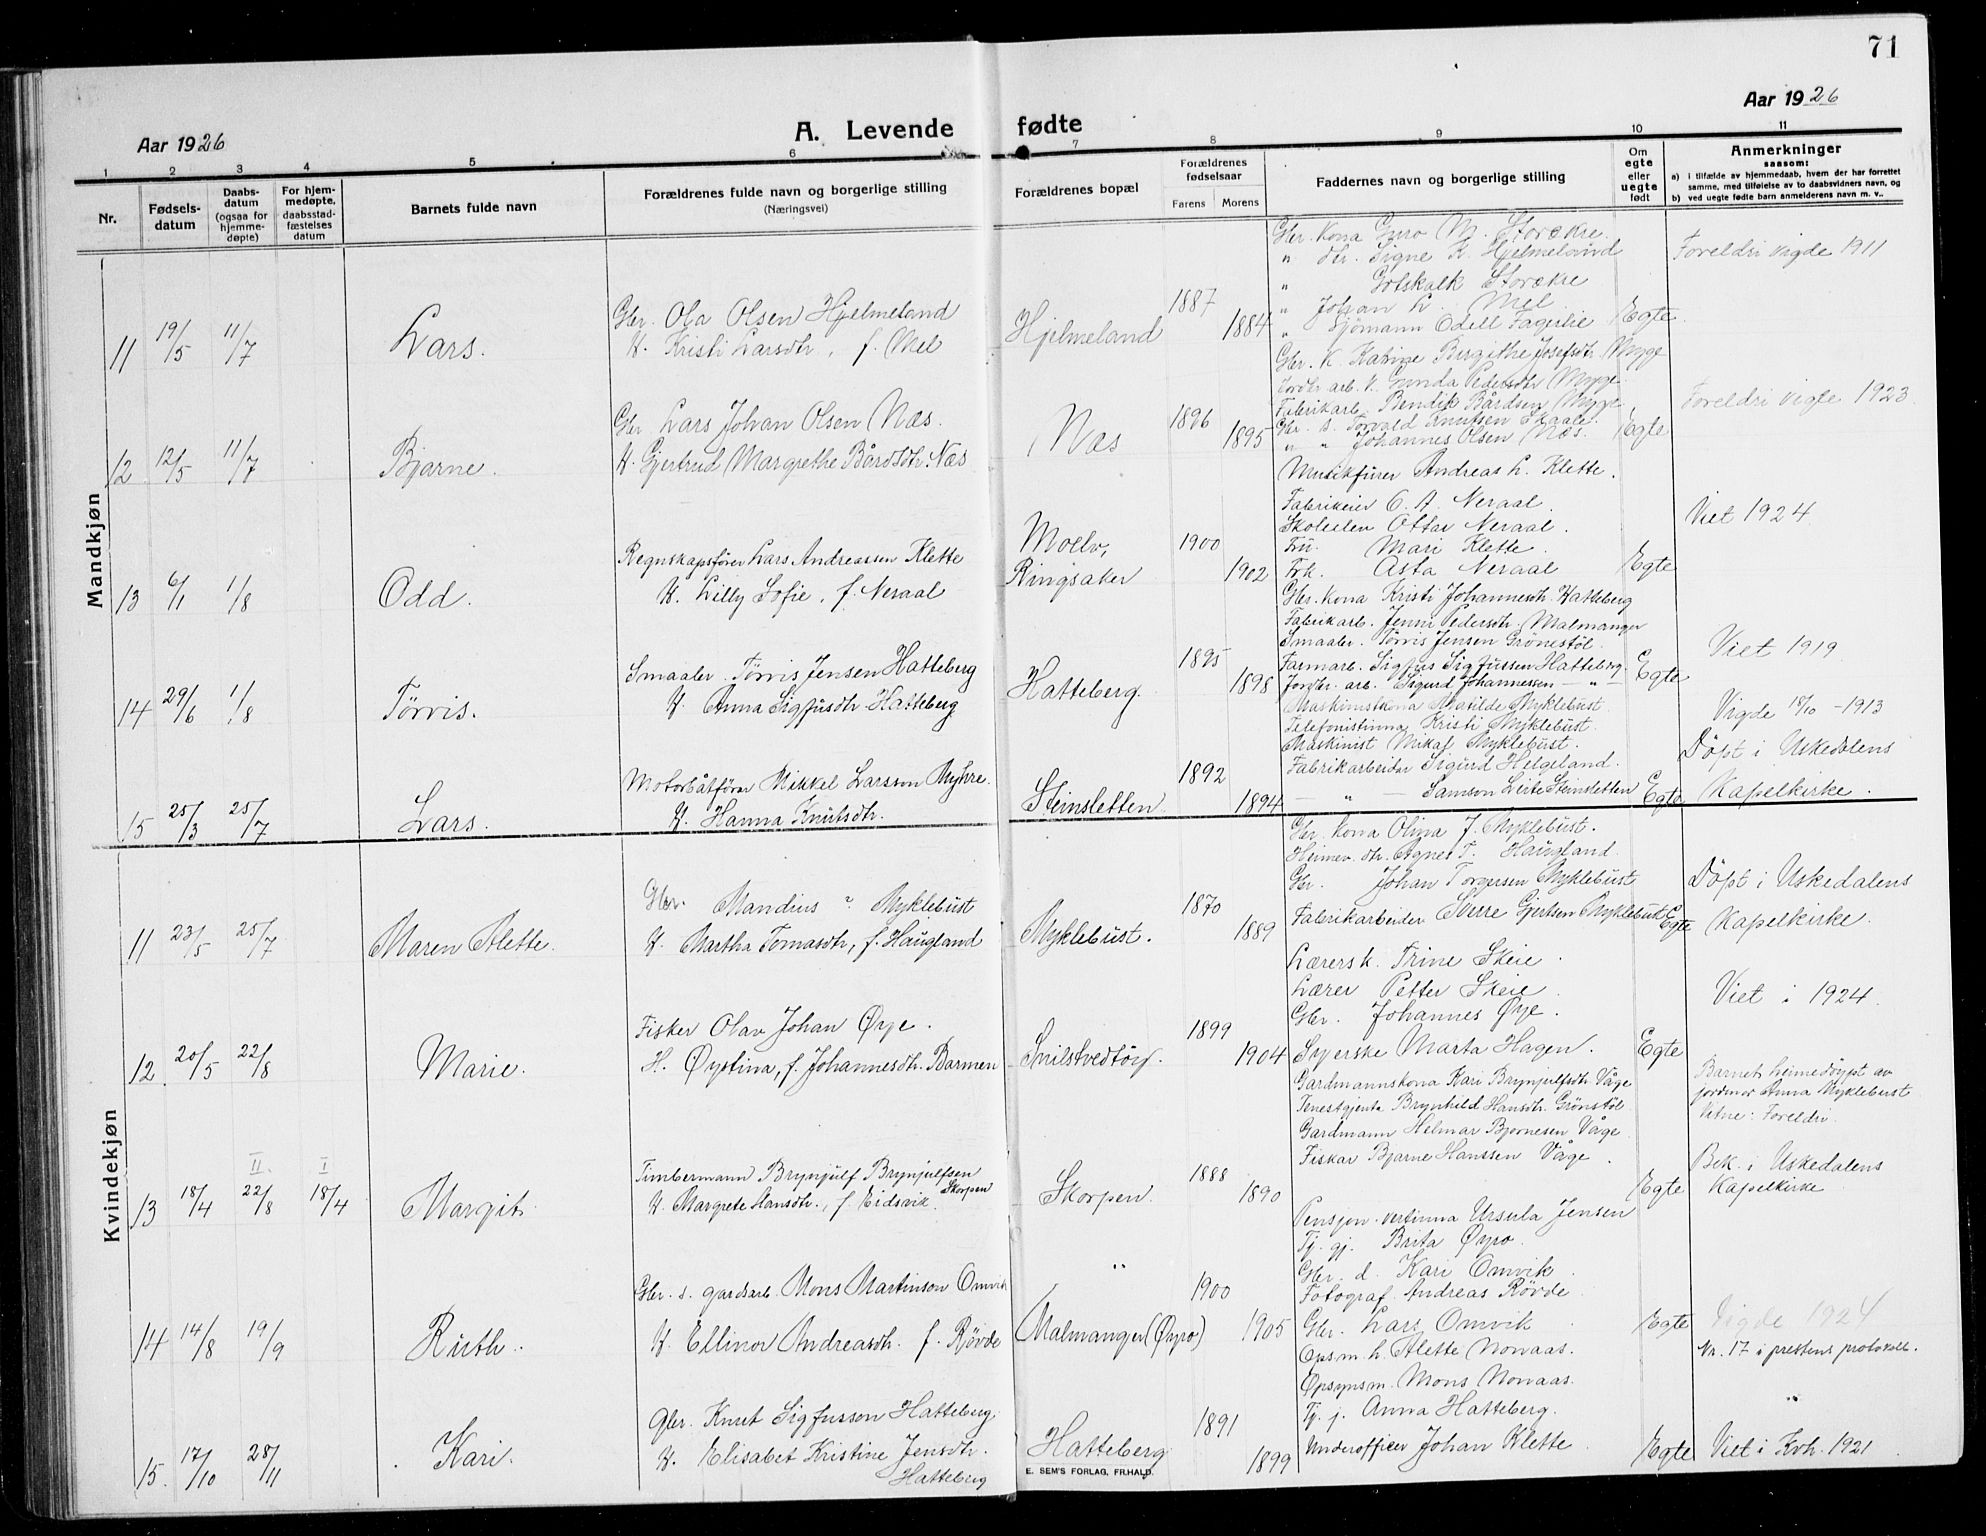 71
Aar 1926
A. Levende fødte
Aar 1926
1 2 3 4 5 6 7 8 9 10 11
Nr.
Fødsels-
datum
Daabs-
datum
(ogsaa for
hjemme-
døpte)
For hjem-
medøpte,
daabsstad-
fæstelses
datum
Barnets fulde navn
Forældrenes fulde navn og borgerlige stilling
(Næringsvei)
Forældrenes bopæl
Forældrenes
fødselsaar
Farens Morens
Faddernes navn og borgerlige stilling
Om
egte
eller
uegte
født
Anmerkninger
saasom:
a) i tilfælde av hjemmedaab, hvem der har forrettet
samme, med tilføielse av to daabsvidners navn, og
b) ved uegte fødte barn anmelderens navn m. v..
Mandkjøn
11 19/5 11/7 Lars.
Gbr. Ola Olsen Hjelmeland
H. Kristi Larsdtr, f. Mel
Hjelmeland 1887 1884
Gbr. Kona Guro M. Storækre.
" dtr. Signe K. Hjelmeland
" Gotskalk Storækre
" Johan L. Mel
" Sjömann Odell Fagerlie
Egte
Foreldri vigde 1911
12 12/5 11/7 Bjarne.
Gbr Lars Johan Olsen Næs.
H. Gjertrud Margrethe Bårdsdtr. Næs
Næs 1896 1895
Gbr. K. Katrine Birgithe Josefsdtr. Myge
Jordbr. arb. K. Gunda Pedersdtr Myge
Fabrikarb. Bendik Bårdsen Myge
Gbr. s. Torvald Knutsen Skaale.
" " Johannes Olsen Næs.
Egte
Foreldri vigte 1923
13 6/1 1/8 Odd.
Regnskapsfører Lars Andreassen Klette
H. Lilly Sofie, f. Neraal
Moelv,
Ringsaker 1900 1902
Musikfurer Andreas L. Klette.
Fabrikeier C. A. Neraal.
Skoleelen Ottar Neraal.
Fru. Mari Klette.
Frk. Asta Neraal
Egte
Viet 1924
14 29/6 1/8 Törvis.
Smaabr. Törvis Jensen Hatteberg
H. Anna Sigfusdtr Hatteberg
Hatteberg. 1895 1898
Gbr. Kona Kristi Johannesdtr. Hatteberg
Fabrikarb. Jenni Pedersdtr. Malmanger
Smaabr. Törvis Jensen Grönestöl.
Farmarb. Sigfus Sigfussen Hatteberg.
Jordbr. arb. Sigurd Johannessen — " —
Egte
Viet 1919
15 25/3 25/7 Lars.
Motorbåtförer Mikkel Larsson Myhre.
H. Hanna Knutsdtr.
Steinsletten. 1892 1894
Maskinistkona Matilde Myklebust
Telefonistinna Kristi Myklebust.
Maskinist Mikal Myklebust.
Fabrikarbeidar Sigurd Helgeland.
— " — Samson Leite Steinsletten
Egte
Vigde 18/10 - 1913
Döpt i Uskedalens
Kapelkirke.
Kvindekjøn
11 23/5 25/7 Maren Alette.
Gbr. Mandius Myklebust
H. Martha Tomasdtr, f. Haugland
Myklebust. 1870 1889
Gbr. Kona Olina J. Myklebust.
Heimev. dtr. Agnes T. Haugland
Gbr. Johan Torgersen Myklebust
Fabrikarbeider Sverre Gjertsen Myklebust
Egte
Döpt i Uskedalens
Kapelkirke.
12 20/5 22/8 Marie.
Fisker Olav Johan Øye.
H. Øystina, f. Johannesdtr. Barmen
Snilstvedtöy. 1899 1904
Lærers k. Trine Skeie.
Lærer Petter Skeie.
Gbr. Johannes Øye.
Syerske Marta Hagen.
Egte
Viet i 1924
13 18/4 II. 22/8 I 18/4 Margit.
Timbermann Brynjulf Brynjulfsen
Skorpen
H. Margrete Hansdtr., f. Eidsvik
Skorpen. 1888 1890
Gardmannskona Kari Brynjulfsdtr Våge
Tenestgjenta Brynhild Hansdtr. Grönstöl
Gardmann Helmar Bjornesen Våge
Fiskar Bjarne Hanssen Våge.
Egte
Barnet heimedöypt av
jordmor Anna Myklebust
Vitne: Foreldri.
Bek. i Uskedalens
Kapelkirke
14 14/8 19/9 Ruth.
Gbr. s. gardsarb. Mons Martinson Omvik
H. Ellinor Andreasdtr. f. Rövde
"
Malmanger (Øyro) 1900 1905
Pensjon. vertinna Ursula Jensen
Tj. gj. Brita Øyro.
Gbr. d. Kari Omvik
Fotograf Andreas Rövde
Gbr. Lars Omvik
Egte
Vigde 1924
Nr. 17 i prestens protokoll.
"
15 17/10 28/11 Kari.
Gbr. Knut Sigfusson Hatteberg
H. Elisabet Kristine Jensdtr.
Hatteberg
Hatteberg 1891 1899
Ops.m. h. Alette Nonaas.
Opsynsm. Mons Nonaas.
Tj. j. Anna Hatteberg.
Underofficer Johan Klette
Egte
Viet i Kvh. 1921
E. SEM'S FORLAG, FR.HALD.